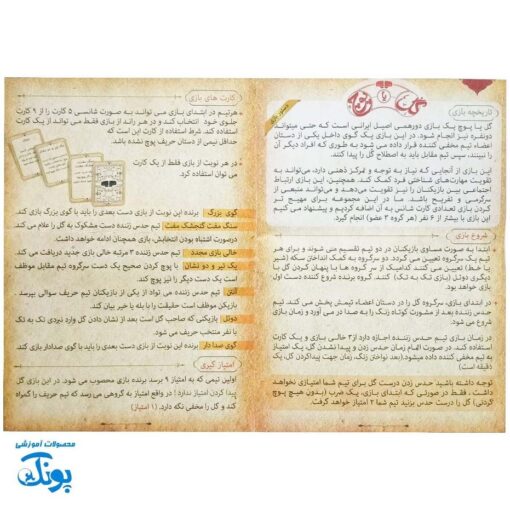 گل یا پوچ
تاریخچه بازی
گل یا پوچ یک بازی دورهمی اصیل ایرانی است که حتی میتواند
دونفره نیز انجام شود. در این بازی یک گوی داخل یکی از دستان
اعضاء تیم مخفی کننده قرار داده می شود به طوری که افراد دیگر آن
را نبینند، سپس تیم مقابل باید به اصطلاح گل را پیدا کنند.
این بازی از آنجایی که نیاز به توجه و تمرکز ذهنی دارد، می‌تواند به
تقویت مهارت‌های شناختی فرد کمک کند. همچنین، این بازی ارتباط
اجتماعی بین بازیکنان را نیز تقویت می‌دهد و می‌تواند منبعی از
سرگرمی و تفریح باشد. ما در این مجموعه برای مهیج تر
کردن بازی تعدادی کارت شانس به آن اضافه کردیم و پیشنهاد می کنیم
این بازی با بیشتر از ۶ نفر (هر گروه ۳ عضو) انجام گیرد.
شروع بازی
ابتدا به صورت مساوی بازیکنان در دو تیم تقسیم می شوند و برای هر
تیم یک سرگروه تعیین می گردد. دو سرگروه به کمک انداختن سکه (شیر
یا خط) تعیین می کنند کدامیک از سر گروه ها با پنهان کردن گل با
دیگری دوئل (بازی تک به تک) کنند. گروه برنده شروع کننده دست اول
بازی خواهد بود.
در ابتدای بازی، سرگروه گل را در دستان اعضاء تیمش پخش می کند. تیم
حدس زننده بعد از مشورت کوتاه زنگ را به صدا در می آورد و زمان بازی
شروع می شود.
در زمان بازی تیم حدس زننده اجازه دارد از۳ خالی بازی و یک کارت
استفاده کند. در صورت اتمام زمان حدس زدن و پیدا نشدن گل، یک امتیاز
به تیم مخفی کننده داده میشود.(بعد نواختن زنگ، زمان جهت پیداکردن گل، یک
دقیقه است)
توجه داشته باشید حدس زدن درست گل برای تیم شما امتیازی نخواهد
داشت، فقط در صورتی که ابتدای بازی، یک ضرب (بدون هیچ پوچ
کردنی) گل را درست حدس بزنید تیم شما ۲ امتیاز خواهد گرفت.
کارت های بازی
هرتیم در ابتدای بازی می تواند به صورت شانسی ۵ کارت را از ۹ کارت
جلوی خود انتخاب کند و در هر راند از بازی فقط می تواند از یک کارت
استفاده کند. شرط استفاده از کارت این است که
حداقل نیمی از دستان حریف پوچ نشده باشد.
در هر نوبت از بازی فقط از یک کارت
می توان استفاده کرد.
گوی بزرگ برنده این نوبت از بازی دست بعدی را باید با گوی بزرگ بازی کند.
سنگ مفت گنجشک مفت تیم حدس زننده دست مشکوک به گل را اعلام می کند.
درصورت اشتباه بودن انتخابش، بازی همچنان ادامه خواهد داشت.
خالی بازی مجدد تیم حدس زننده ۳ مرتبه خالی بازی جدید دریافت می کند.
یک تیر و دو نشان با پوچ کردن صحیح یک دست سرگروه تیم مقابل موظف
است یک دست دیگر را نیز پوچ کند.
آنتن تیم حدس زننده می تواند از یکی از بازیکنان تیم حریف سوالی بپرسد.
بازیکن موظف است حقیقت را با بله یا خیر بیان کند.
دوئل بازیکنی که صاحب گل است بعد از نشان دادن گل وارد نبردی تک به تک
با نفر منتخب حریف می شود.
گوی صدا دار برنده این نوبت از بازی دست بعدی را باید با گوی صدادار بازی کند.
امتیاز گیری
اولین تیمی که به امتیاز ۹ برسد برنده بازی محسوب می شود. در این بازی گل
پیدا کردن امتیاز ندارد! در واقع امتیاز به گروهی می رسد که تیم حریف را گمراه
کند و گل را مخفی نگه دارد. (۱ امتیاز)
محصولات آموزشی
پونک